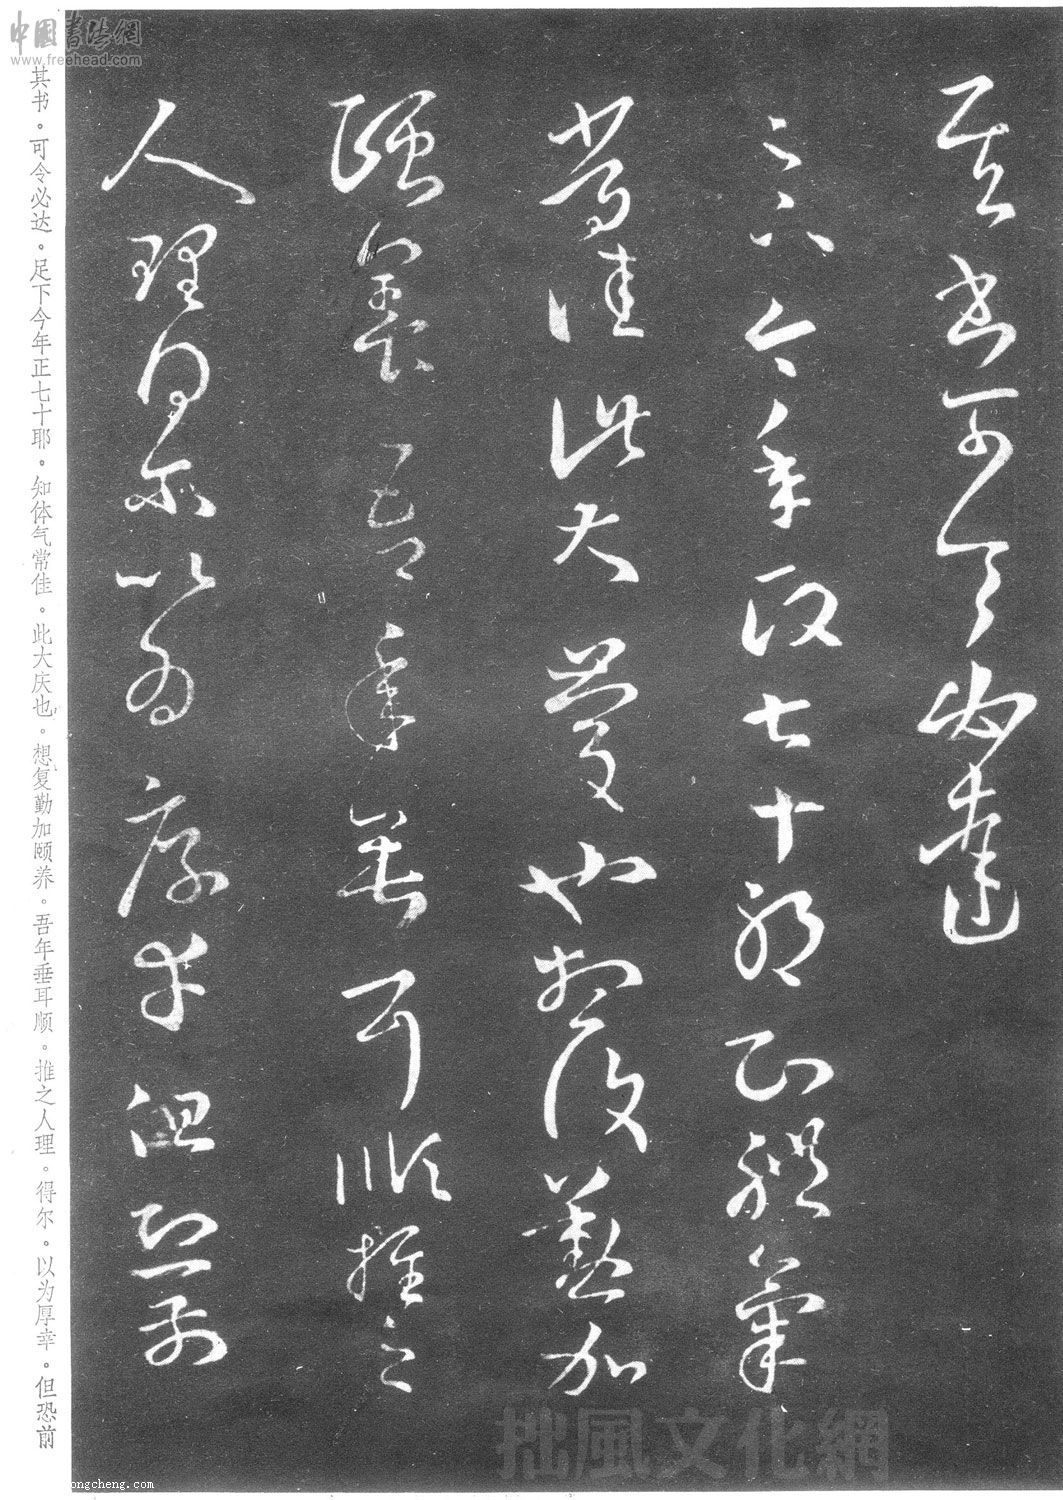 其書可令必達
足下今年政七十耶知體氣
常佳此大慶也想復勤加
頤養吾年垂耳順推之
人理得爾以為厚幸但恐前
其书。可令必达。足下今年正七十耶。知体气常佳。此大庆也。想复勤加颐养。吾年垂耳顺。推之人理。得尔。以为厚幸。但恐前
中国书法網
www.freehead.com
拙風文化網
ongcheng.com